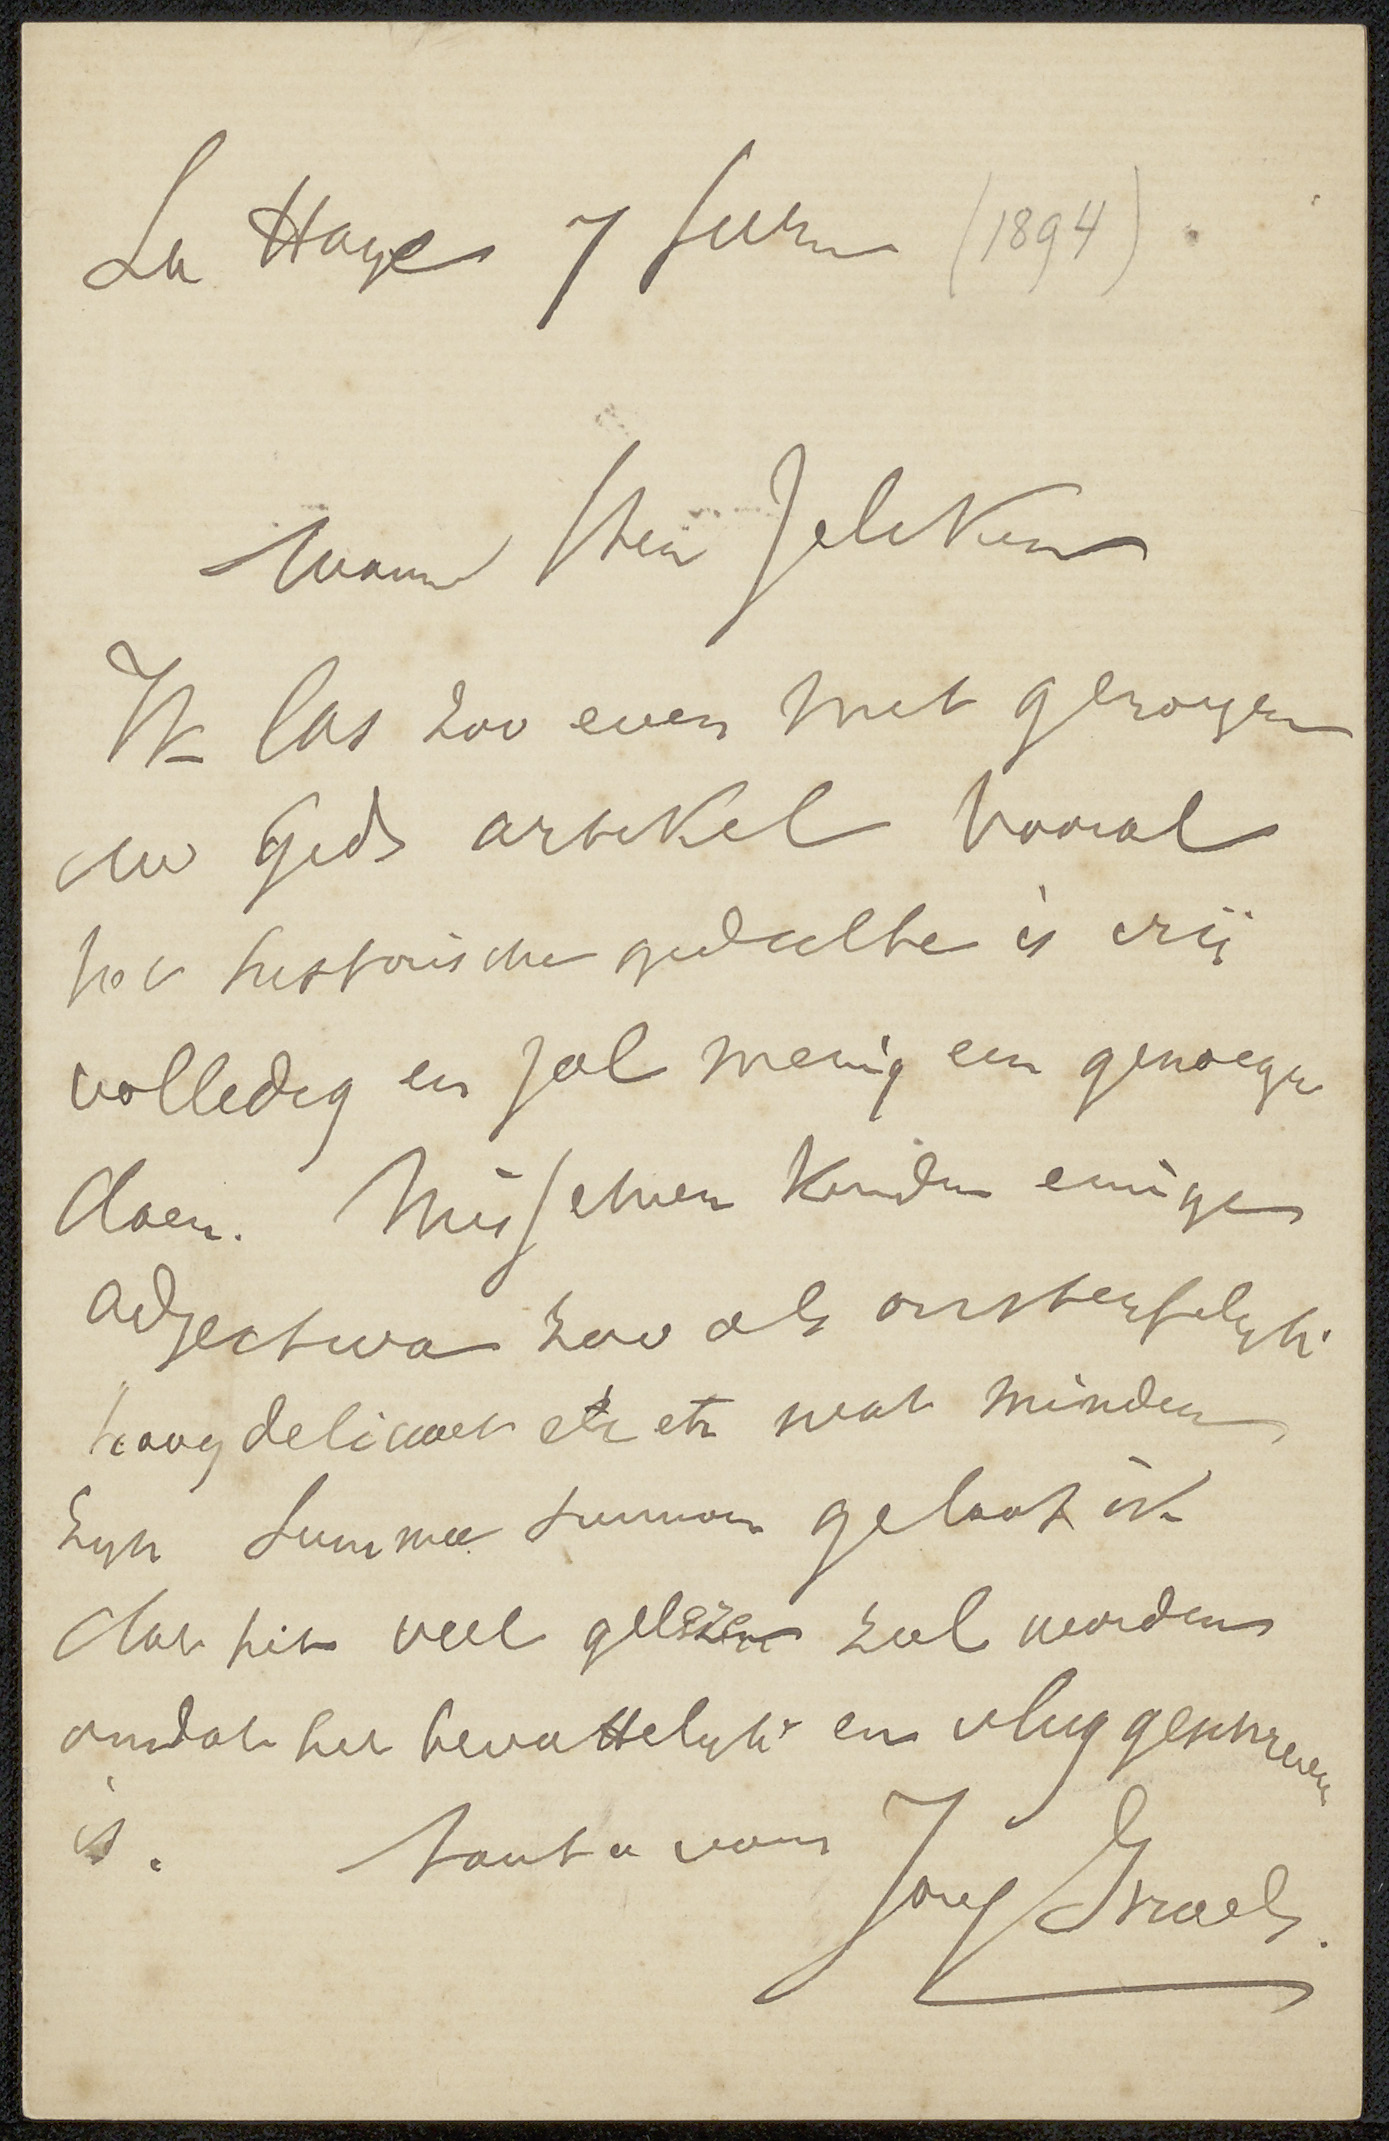 La Haye 7 Juni (1894)
Waarde Heer Zilcken
Ik las zoo even met genoegen
uw Gids artikel vooral
het historische gedeelte is vrij
volledig en zal menig een genoegen
doen. Misschien konden eenige
adjectiva zoo als onsterfelijk
hoog delicaat etc etc wat minder
zijn Summa summarum geloof ik
dat het veel gelezen zal worden
omdat het bevattelijk en vlug geschreven
is. tout a vous
Jozef Israels.